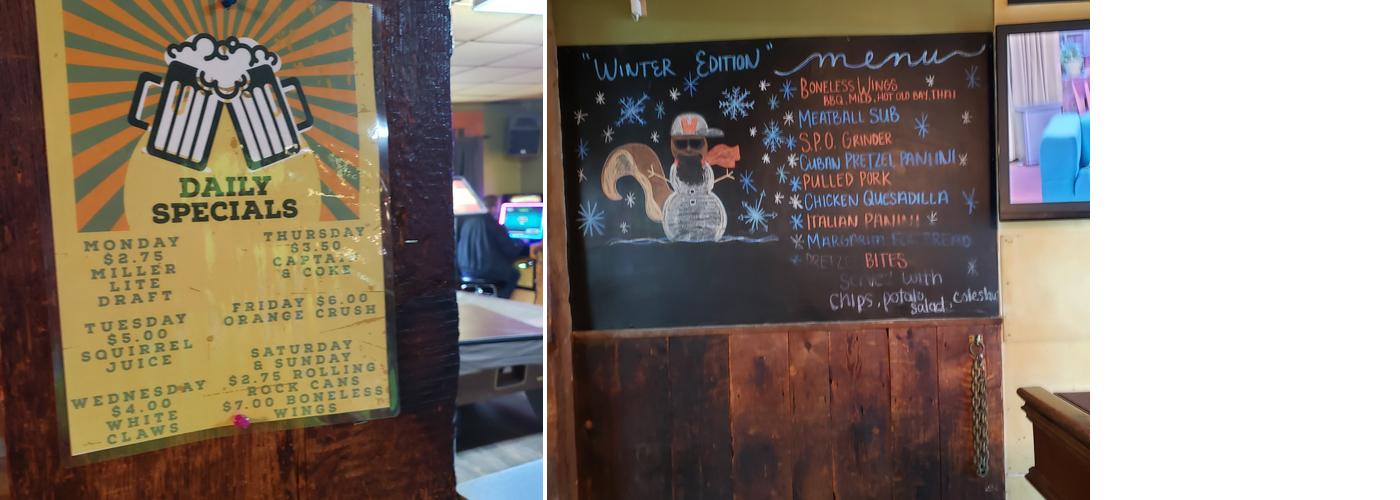 DAILY
SPECIALS
MONDAY
$2.75
MILLER
LITE
DRAFT
TUESDAY
$5.00
SQUIRREL
JUICE
WEDNESDAY
$4.00
WHITE
CLAWS
THURSDAY
$3.50
CAPTAIN
& COKE
FRIDAY $6.00
ORANGE CRUSH
SATURDAY
& SUNDAY
$2.75 ROLLING
ROCK CANS
$7.00 BONELESS
WINGS
"WINTER EDITION" menu
W
BONELESS WINGS
BBQ, MILD, HOT OLD BAY, THAI
MEATBALL SUB
S.P.O. GRINDER
CUBAN PRETZEL PANINI
PULLED PORK
CHICKEN QUESADILLA
ITALIAN PANINI
BITES
Served with
chips, potato
salad,